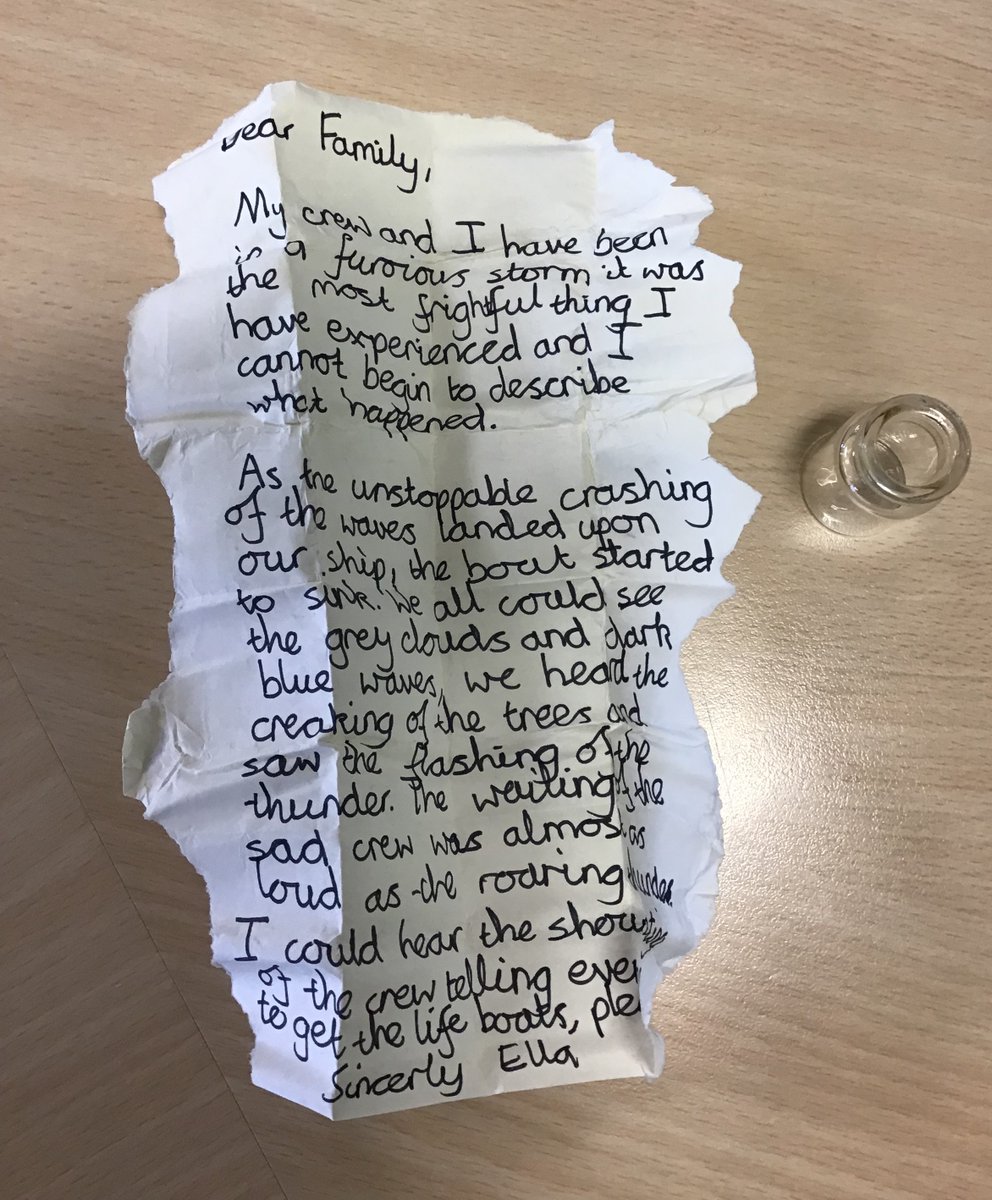 Dear Family,
My crew and I have been
in a furoious storm it was
the most frightful thing I
have experienced and I
cannot begin to describe
what happened.
As the unstoppable crashing
of the waves landed upon
our ship, the boat started
to sink. We all could see
the grey clouds and dark
blue waves, we heard the
creaking of the trees and
saw the flashing of the
thunder. The wailing of the
sad crew was almost as
loud as the roaring thunder.
I could hear the shouting
of the crew telling ever
to get the life boats, ple
Sincerly Ella